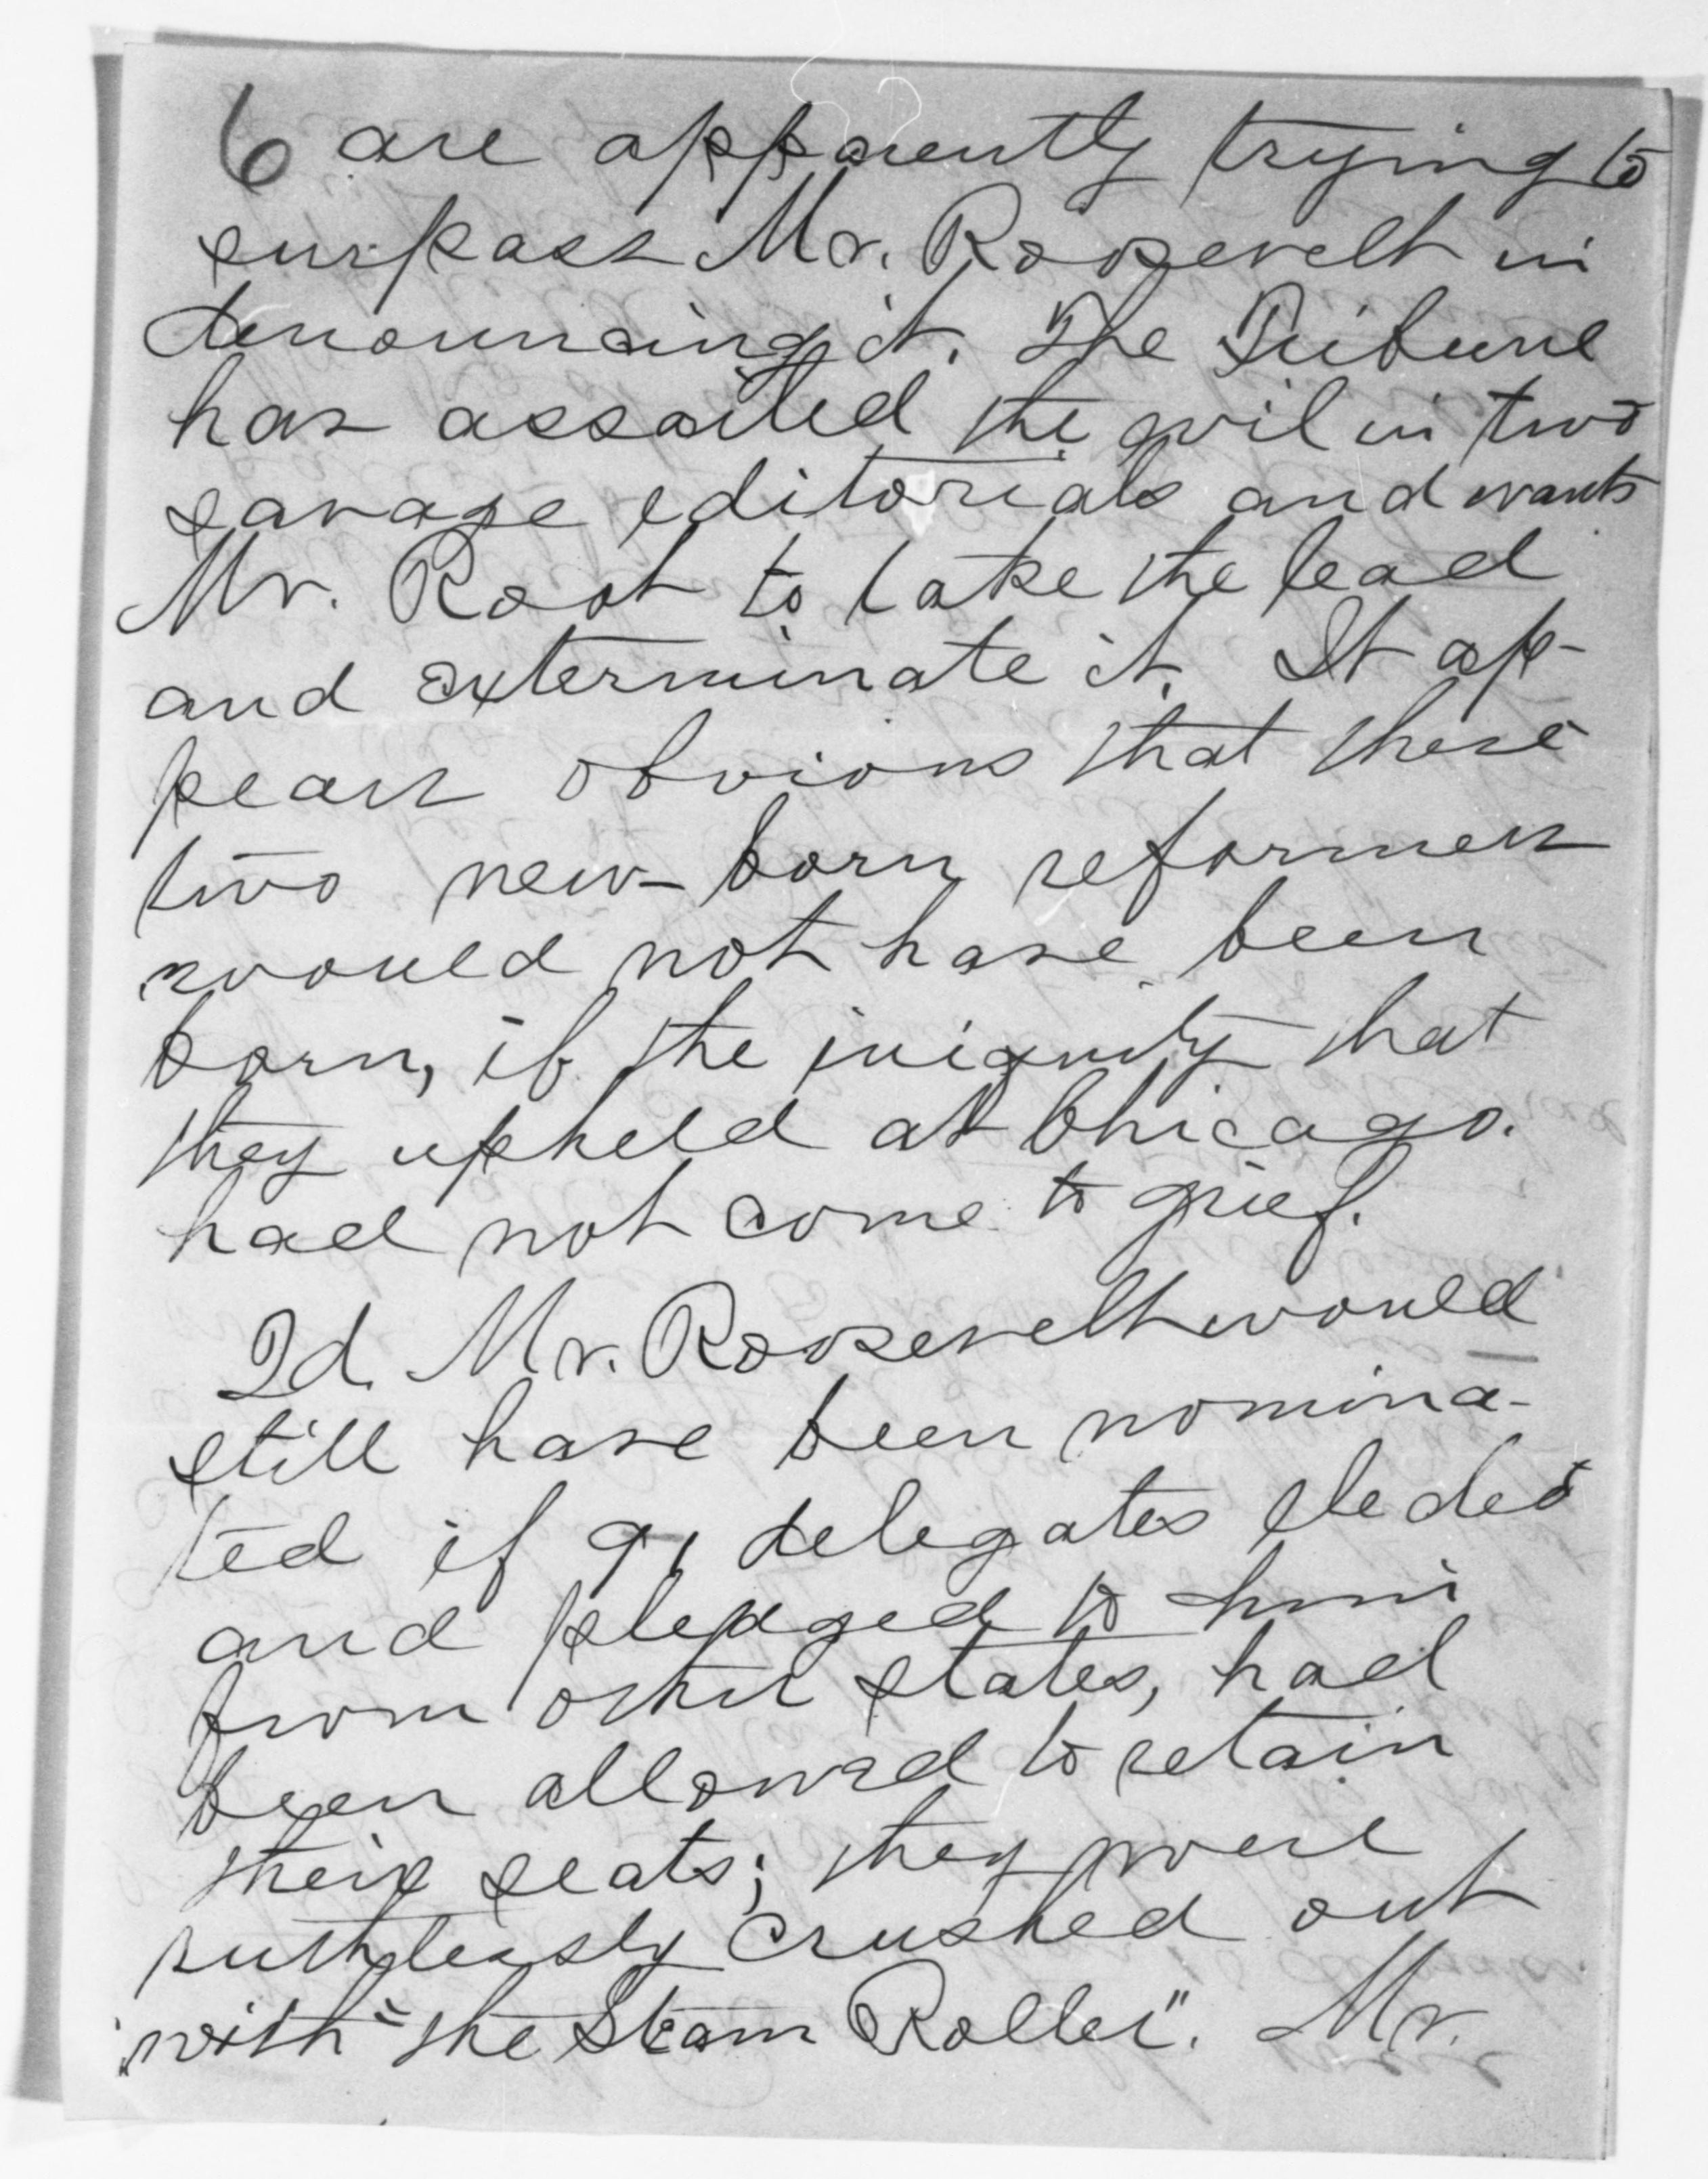 6 are apparently trying to
surpass Mr. Roosevelt in
denouncing it. The Tribune
has assailed the evil in two
savage editorials and wants
Mr. Root to take the lead
and exterminate it. It ap-
pears obvious that these
two new-born reformers
would not have been
born, if the iniquity that
they upheld at Chicago.
had not come to grief.
2d. Mr. Roosevelt would
still have been nomina-
ted if 91 delegates elected
and pledged to him
from other states, had
been allowed to retain
their seats; they were
ruthlessly crushed out
with "the Steam Roller". Mr.